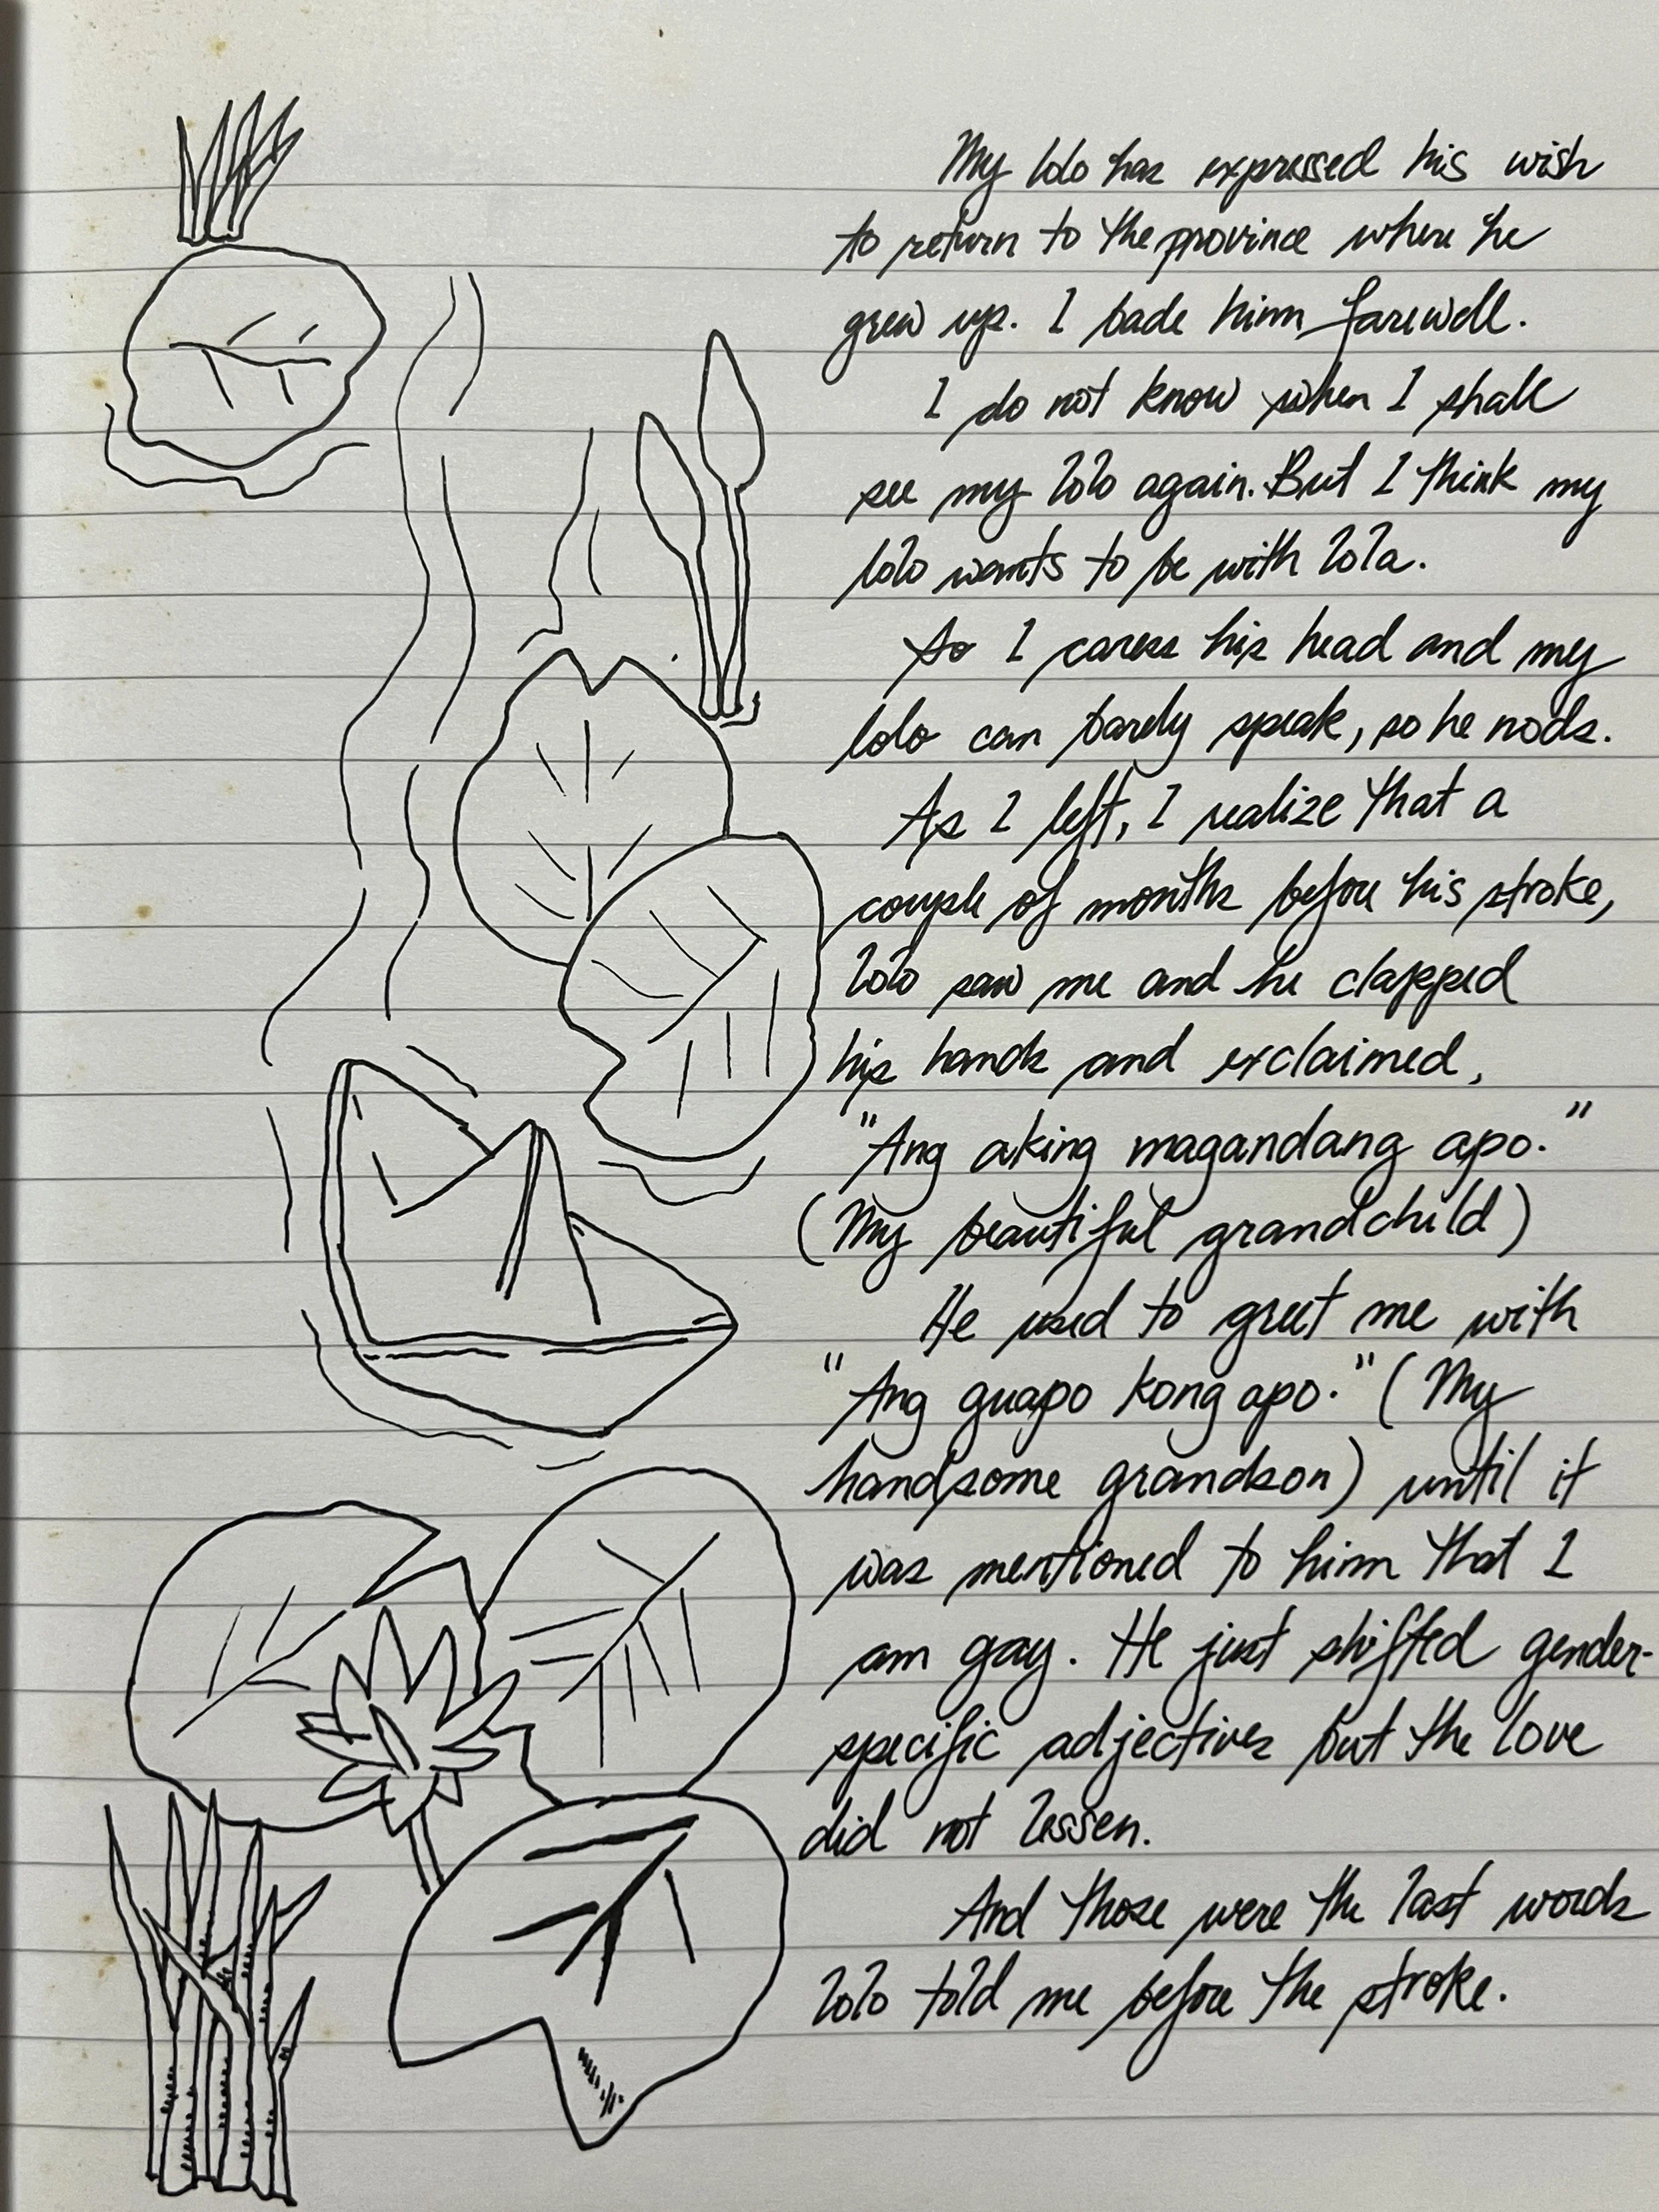 My lolo has expressed his wish
to return to the province where he
grew up. I bade him farewell.
I do not know when I shall
see my lolo again. But I think my
lolo wants to be with lola.
So I caress his head and my
lolo can barely speak, so he nods.
As I left, I realize that a
couple of months before his stroke,
lolo saw me and he clapped
his hands and exclaimed,
"Ang aking magandang apo."
(My beautiful grandchild)
He used to greet me with
"Ang guapo kong apo." (My
handsome grandson) until it
was mentioned to him that I
am gay. He just shifted gender-
specific adjectives but the love
did not lessen.
And those were the last words
lolo told me before the stroke.